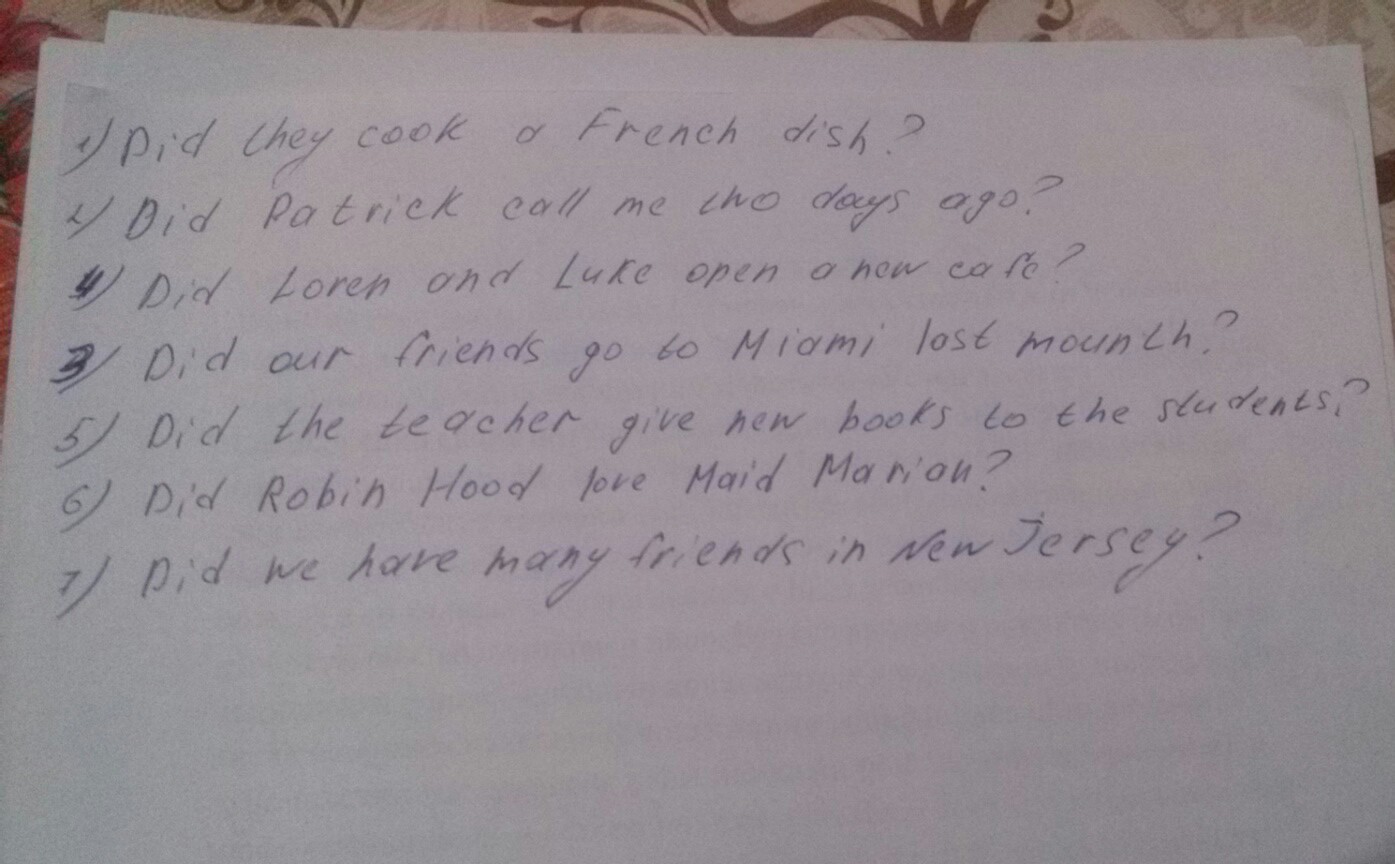 1) Did they cook a French dish?
2) Did Patrick call me two days ago?
4) Did Loren and Luke open a new cafe?
3) Did our friends go to Miami last mounth?
5) Did the teacher give new books to the students?
6) Did Robin Hood love Maid Marian?
7) Did we have many friends in New Jersey?